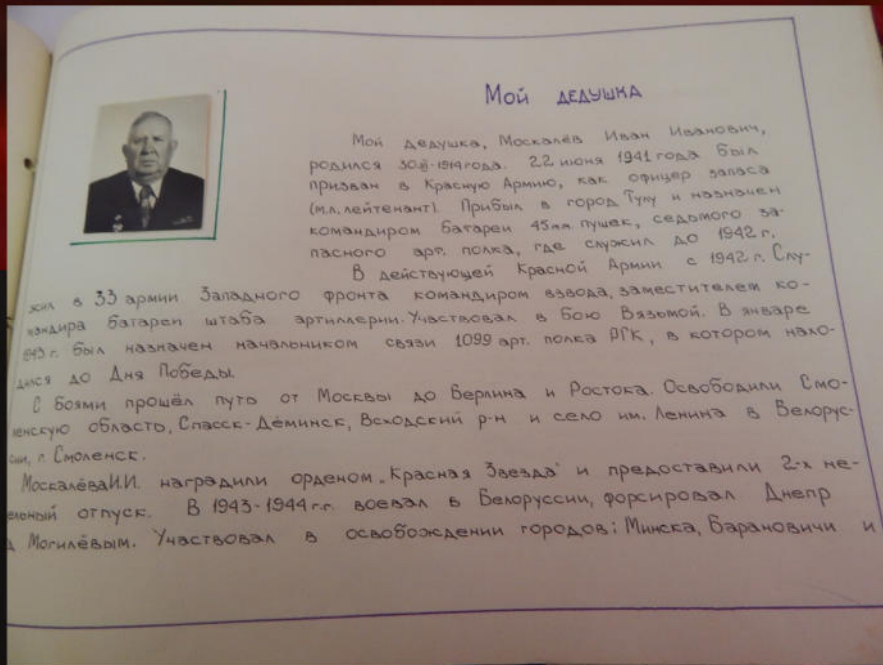 Мой дедушка
Мой дедушка, Москалёв Иван Иванович,
родился 1914 года. 22 июня 1941 года был
призван в Красную Армию, как офицер запаса
(мл. лейтенант). Прибыл в город Тулу и назначен
командиром батареи 45мм. пушек, седьмого за-
пасного арт. полка, где служил до 1942 г.
В действующей Красной Армии с 1942 г. Слу-
жил в 33 армии Западного фронта командиром взвода, заместителем ко-
мандира батареи штаба артиллерии. Участвовал в бою Вязьмой. В январе
1943 г. был назначен начальником связи 1099 арт. полка РГК, в котором нахо-
дился до Дня Победы.
С боями прошёл путь от Москвы до Берлина и Ростока. Освободили Смо-
ленскую область, Спасск-Деминск, Всходский р-н и село им. Ленина в Белорус-
сии, г. Смоленск.
Москалёва И.И. наградили орденом „Красная Звезда" и предоставили 2-х не-
ельный отпуск. В 1943-1944 г.г. воевал в Белоруссии, форсировал Днепр
Могилёвым. Участвовал в освобождении городов: Минска, Барановичи и